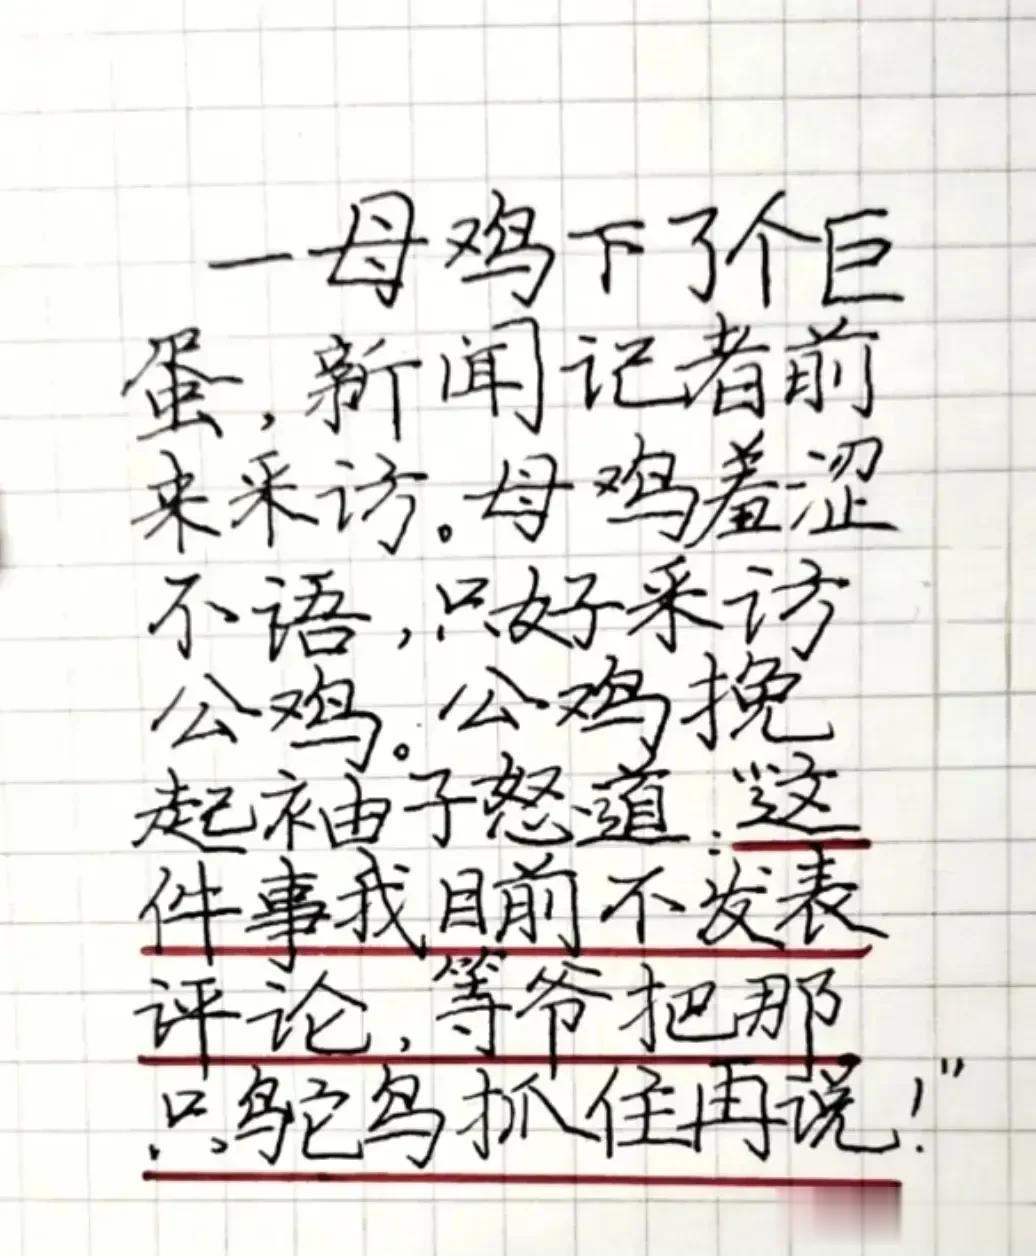 一母鸡下了个巨
蛋,新闻记者前
来采访。母鸡羞涩
不语,只好采访
公鸡。公鸡挽
起袖子怒道:“这
件事我目前不发表
评论,等爷把那
只鸵鸟抓住再说!”